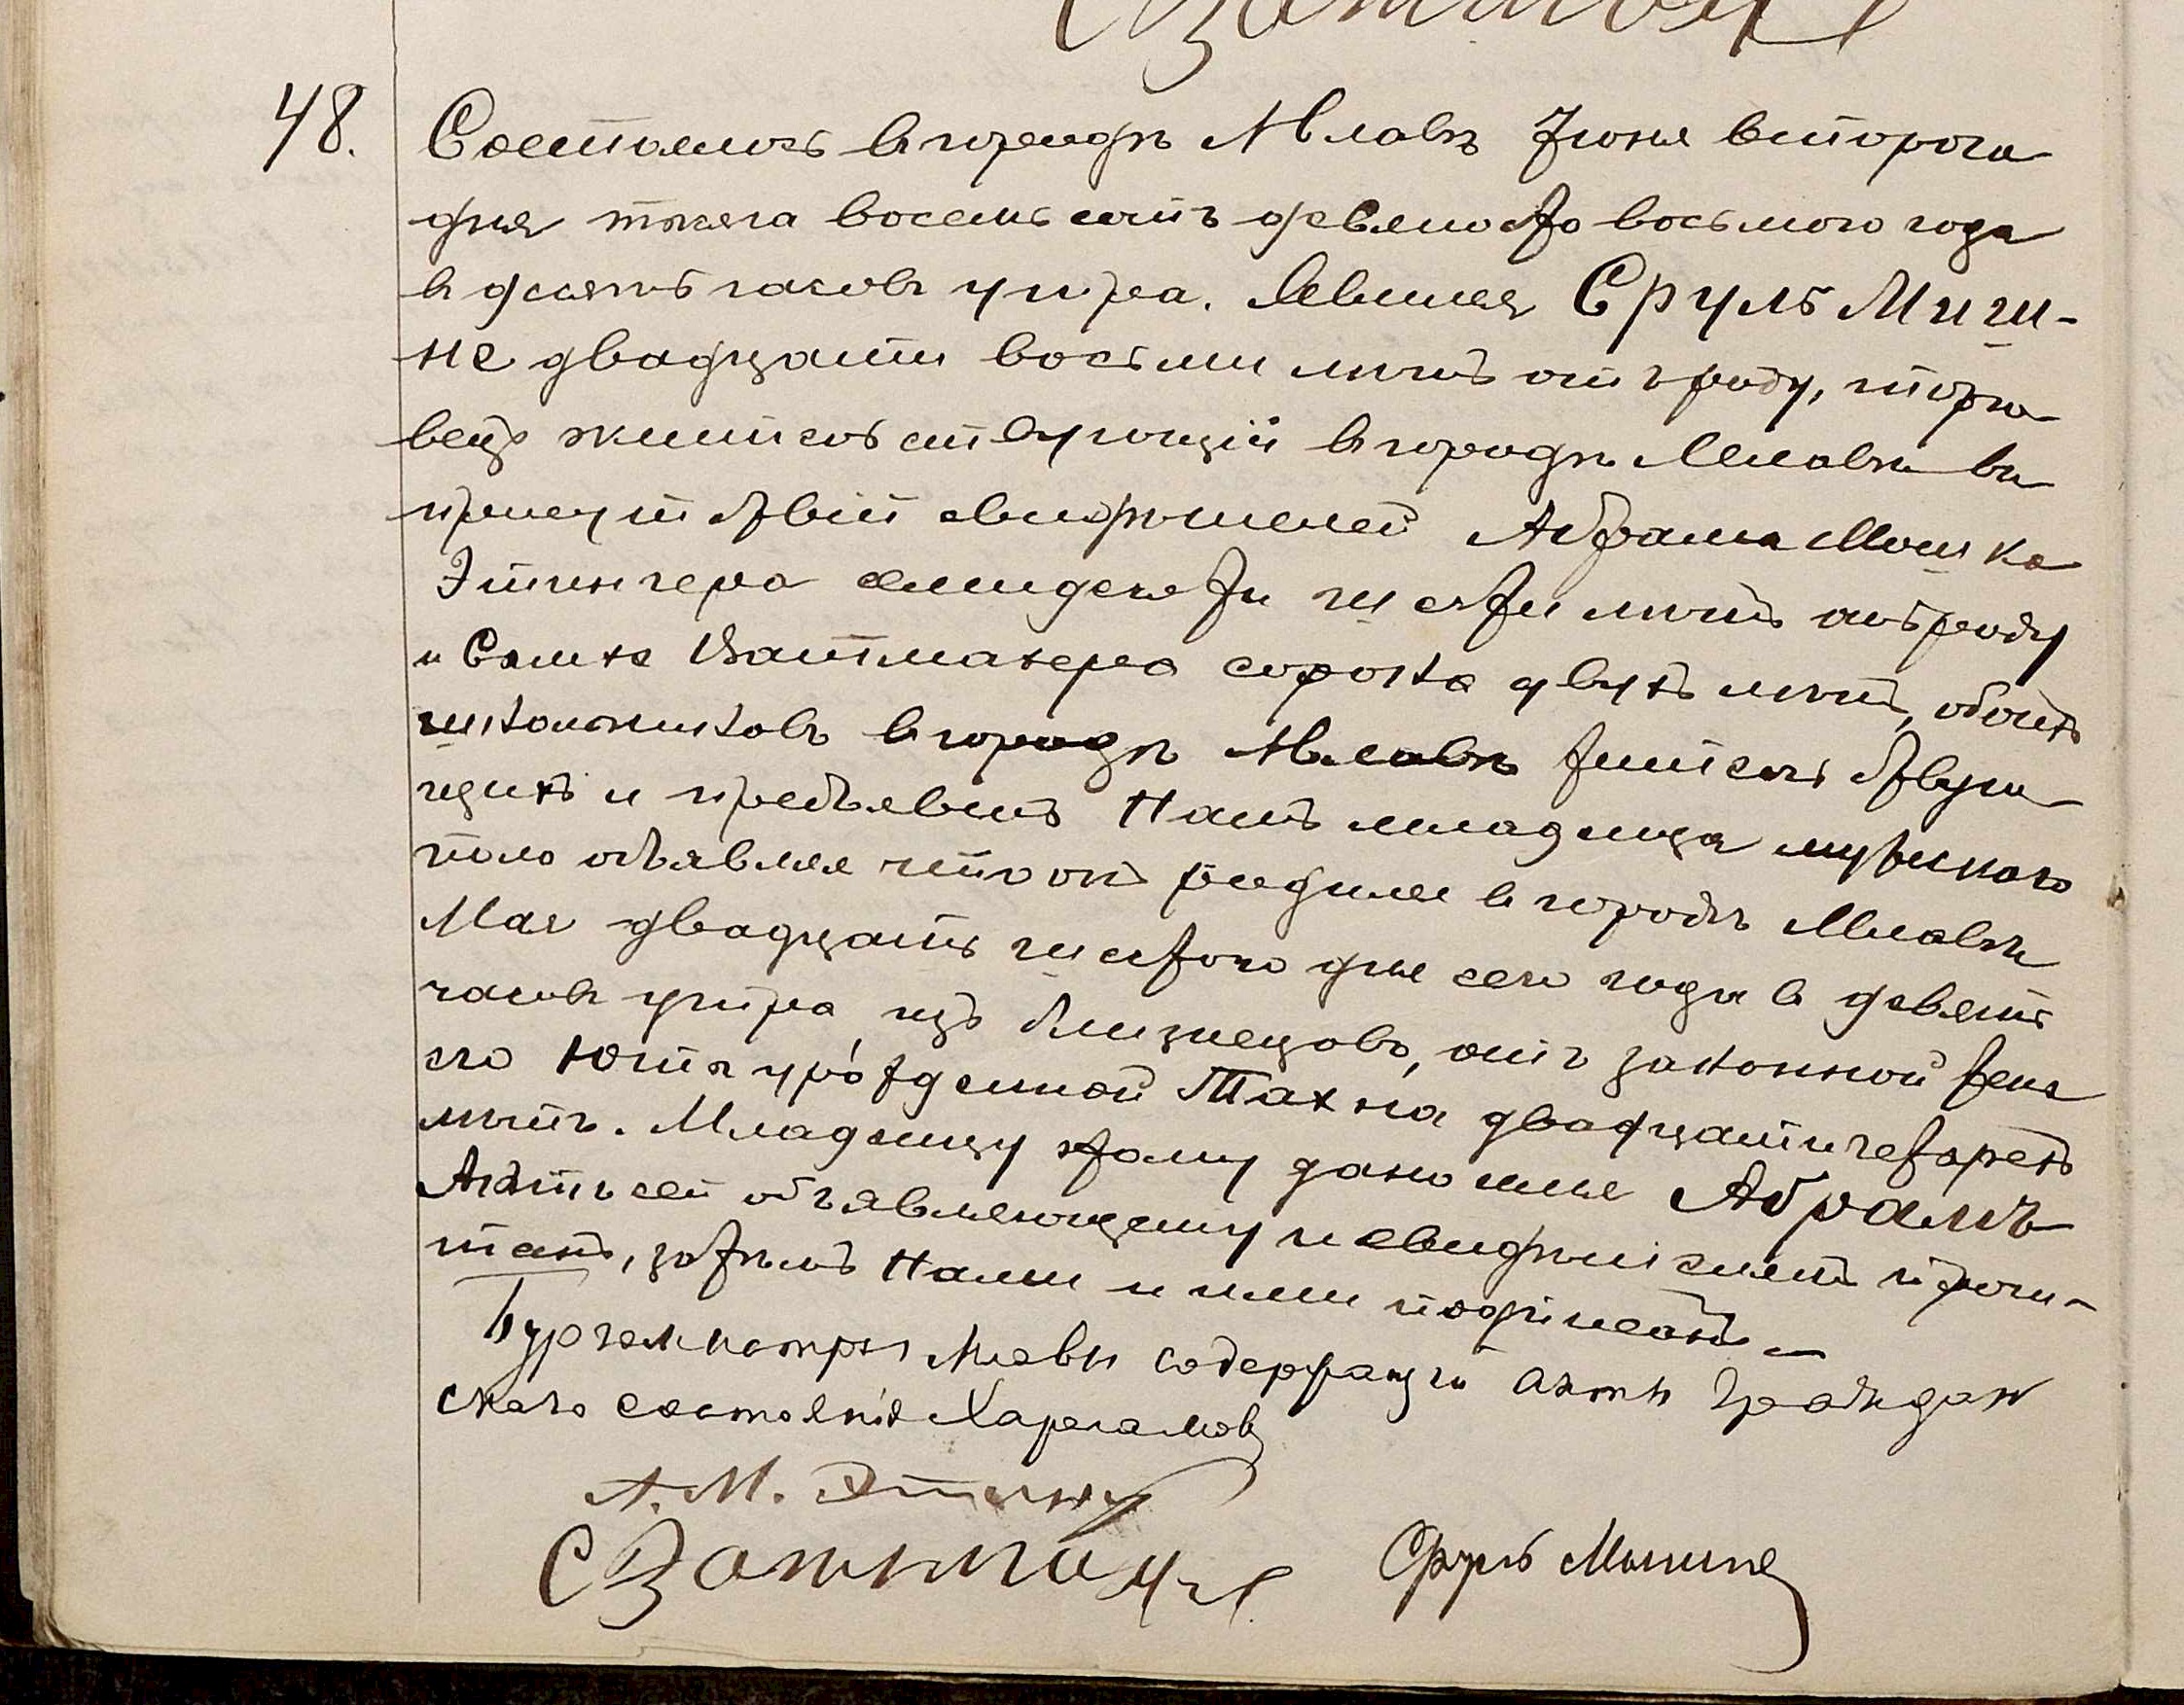 48. Состоялось в городѣ Млавѣ Iюня второго
дня тысяча восемьсотъ девяносто восьмого года
в десять часовъ утра. Явился Сруль Миши-
не двадцати восьми лѣтъ отъ роду, торго
вецъ жительствующій в городѣ Млавѣ въ
присутствіи свидѣтелей Абрама Мошка
Этингера семидесяти шести лѣтъ отъ роду
и Самка Ватмахера сорока двухъ лѣтъ, обоихъ
школьниковъ в городѣ Млавѣ жительствую
щихъ и предъявилъ Намъ младенца мужскаго
пола объявляя что онъ родился в городѣ Млавѣ
Мая двадцать шестого дня сего года в девять
часовъ утра изъ близнецовъ, отъ законной жены
его урожденной двадцатичетырехъ
лѣтъ. Младенцу этому дано имя Абрамъ
Актъ сей объявляющему и свидѣтелямъ прочи-
танъ, затѣмъ Нами и ими подписанъ
Бургомистръ Млавы содержащій акты граждан
скаго состоянія
А. М. Этингер
Сруль Мишине